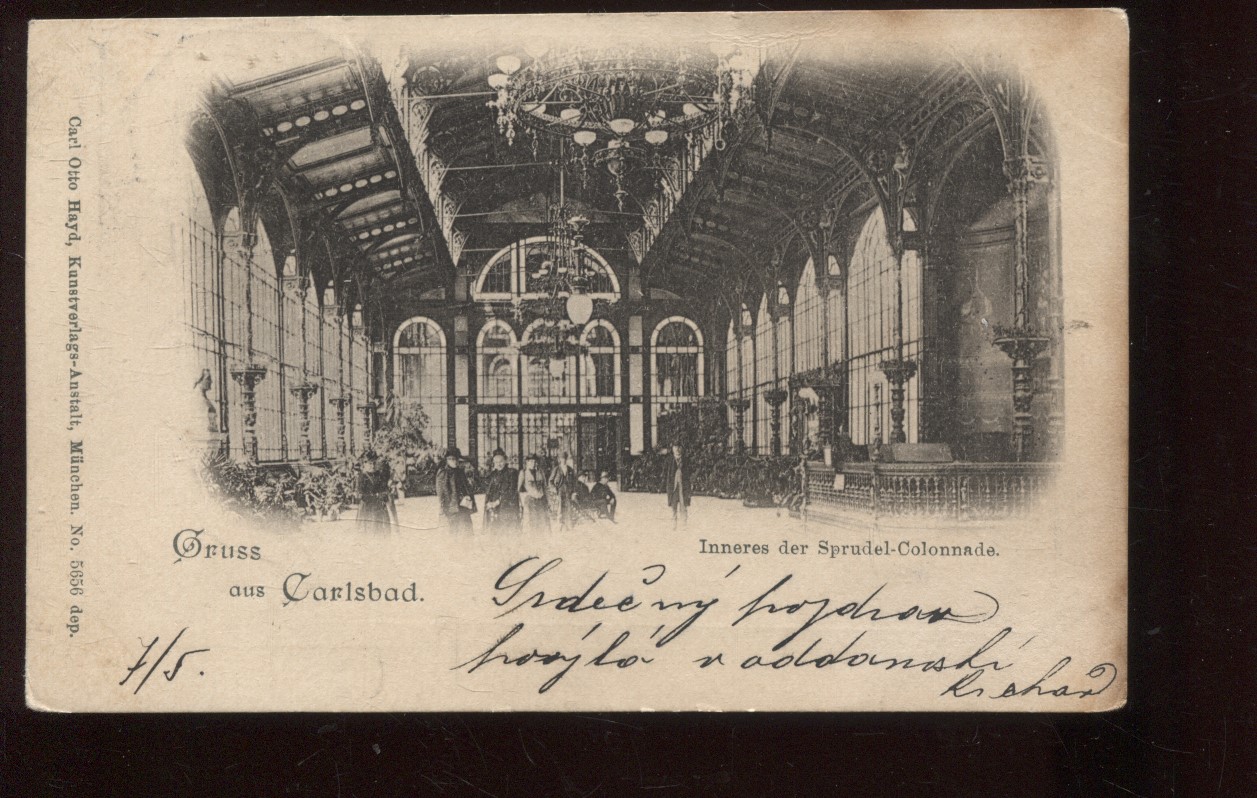 Carl Otto Hayd, Kunstverlags-Anstalt, München. No. 5656 dep.
Gruss
aus Carlsbad.
Inneres der Sprudel-Colonnade.
7/5.
Srdečný pozdrav
v oddanosti